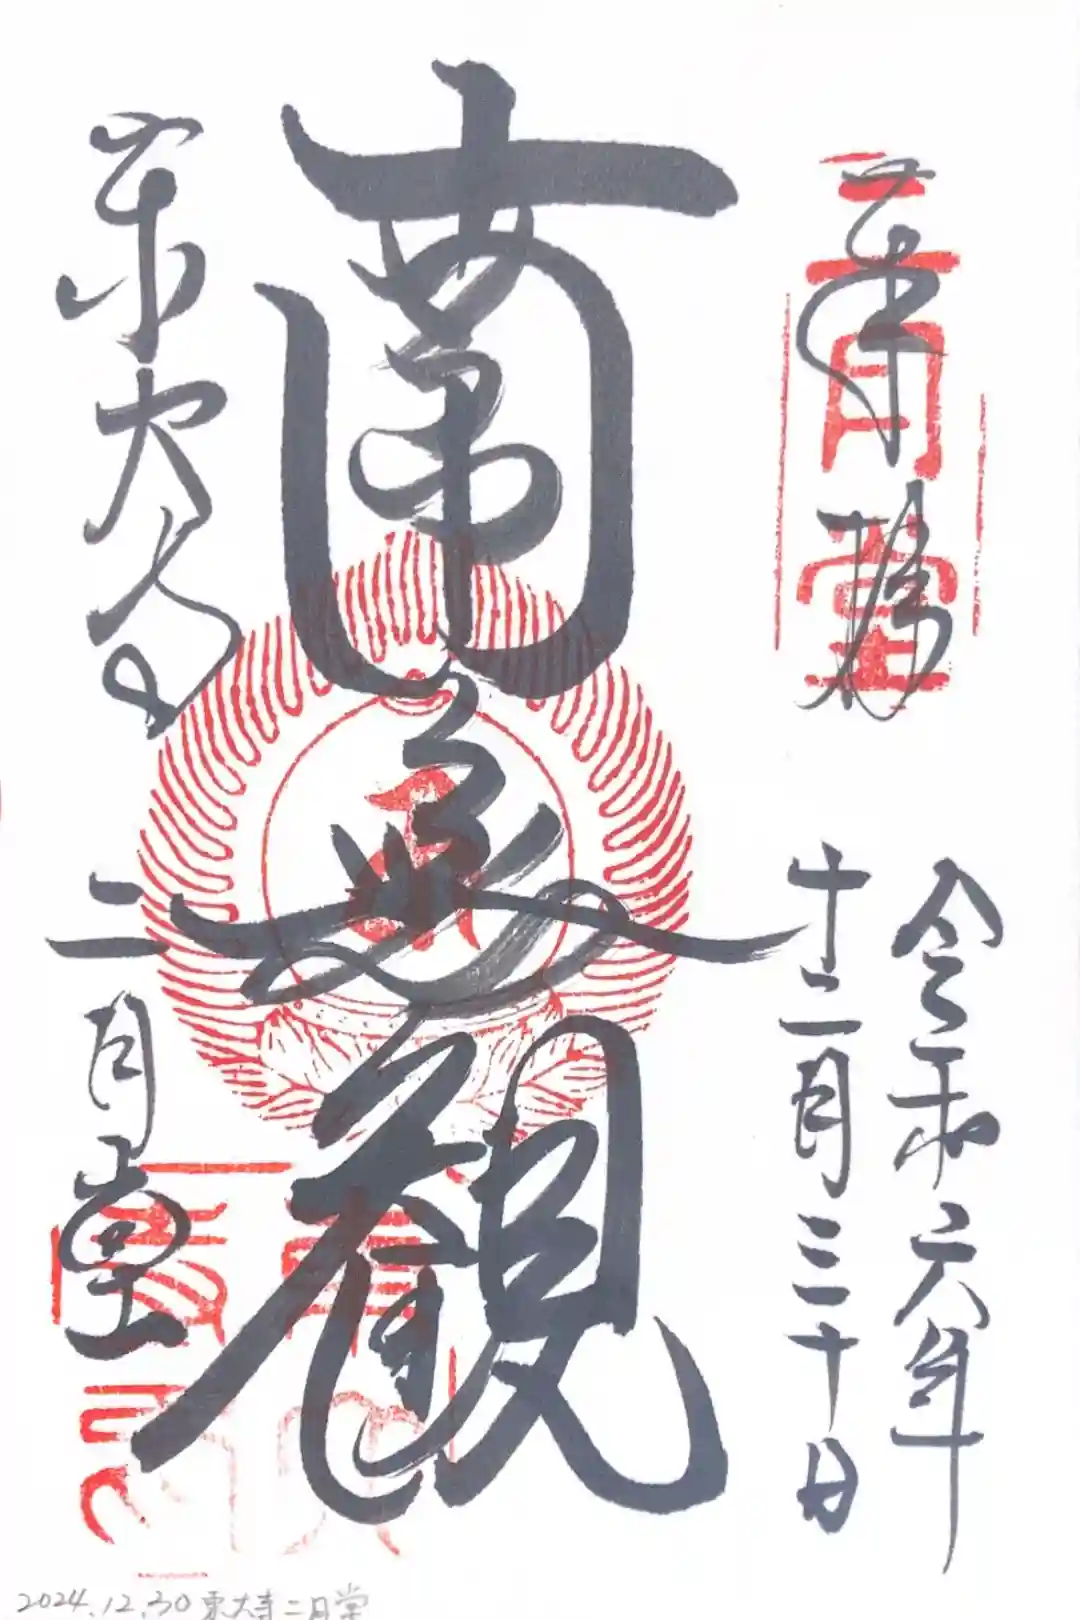 奉拝
二月堂
令和六年
十二月三十日
南無観
東大寺
二月堂
2024.12.30 東大寺二月堂